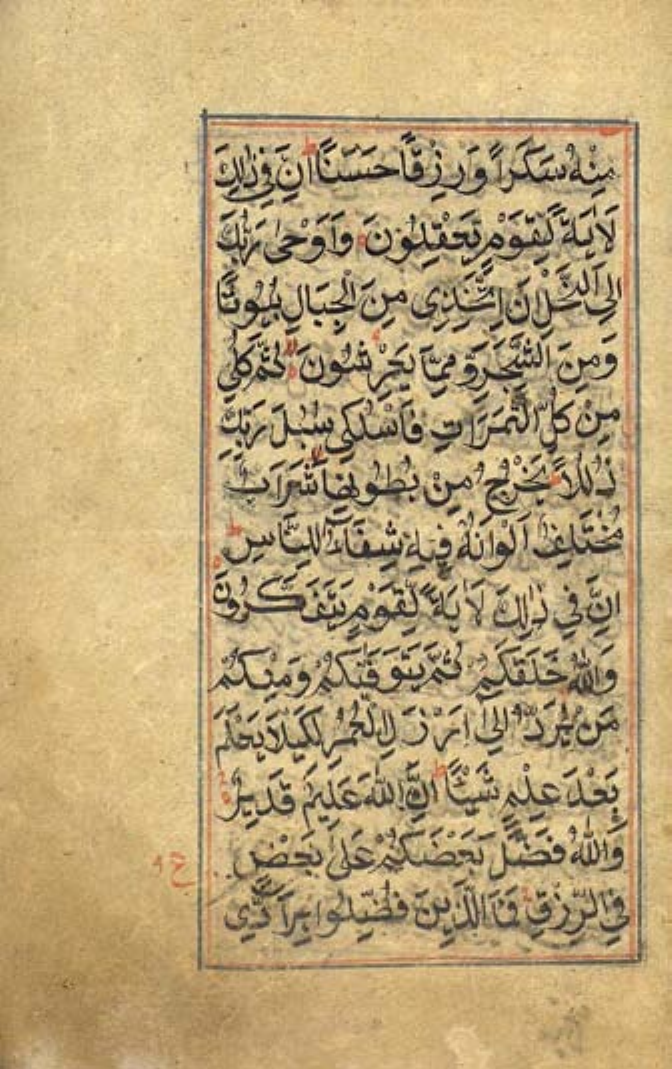 مِنْهُ سَكَرًا وَرِزْقًا حَسَنًا اِنَّ فِي ذٰلِكَ
لَاٰيَةً لِّقَوْمٍ يَّعْقِلُوْنَ وَاَوْحٰى رَبُّكَ
اِلَى النَّحْلِ اَنِ اتَّخِذِى مِنَ الْجِبَالِ بُيُوْتًا
وَمِنَ الشَّجَرِ وَمِمَّا يَعْرِشُوْنَ ثُمَّ كُلِى
مِنْ كُلِّ الثَّمَرَاتِ فَاسْلُكِى سُبُلَ رَبِّكِ
ذُلُلًا يَخْرُجُ مِنْ بُطُوْنِهَا شَرَابٌ
مُّخْتَلِفٌ اَلْوَانُهٗ فِيْهِ شِفَآءٌ لِّلنَّاسِ
اِنَّ فِي ذٰلِكَ لَاٰيَةً لِّقَوْمٍ يَّتَفَكَّرُوْنَ
وَاللّٰهُ خَلَقَكُمْ ثُمَّ يَتَوَفّٰىكُمْ وَمِنْكُمْ
مَّنْ يُّرَدُّ اِلٰى اَرْذَلِ الْعُمُرِ لِكَيْلَا يَعْلَمَ
بَعْدَ عِلْمٍ شَيْئًا اِنَّ اللّٰهَ عَلِيْمٌ قَدِيْرٌ
وَاللّٰهُ فَضَّلَ بَعْضَكُمْ عَلٰى بَعْضٍ
فِي الرِّزْقِ فَمَا الَّذِيْنَ فُضِّلُوْا بِرَآدِّى